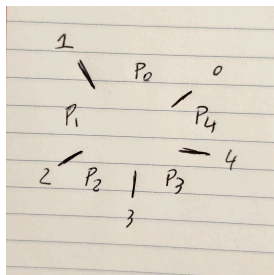 1
P0 0
P1 P4
2 P2 P3 4
3